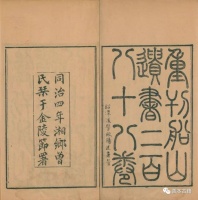 重刊船山
遺書二百
八十八卷
同治四年湘鄉曾
氏栞于金陵節署